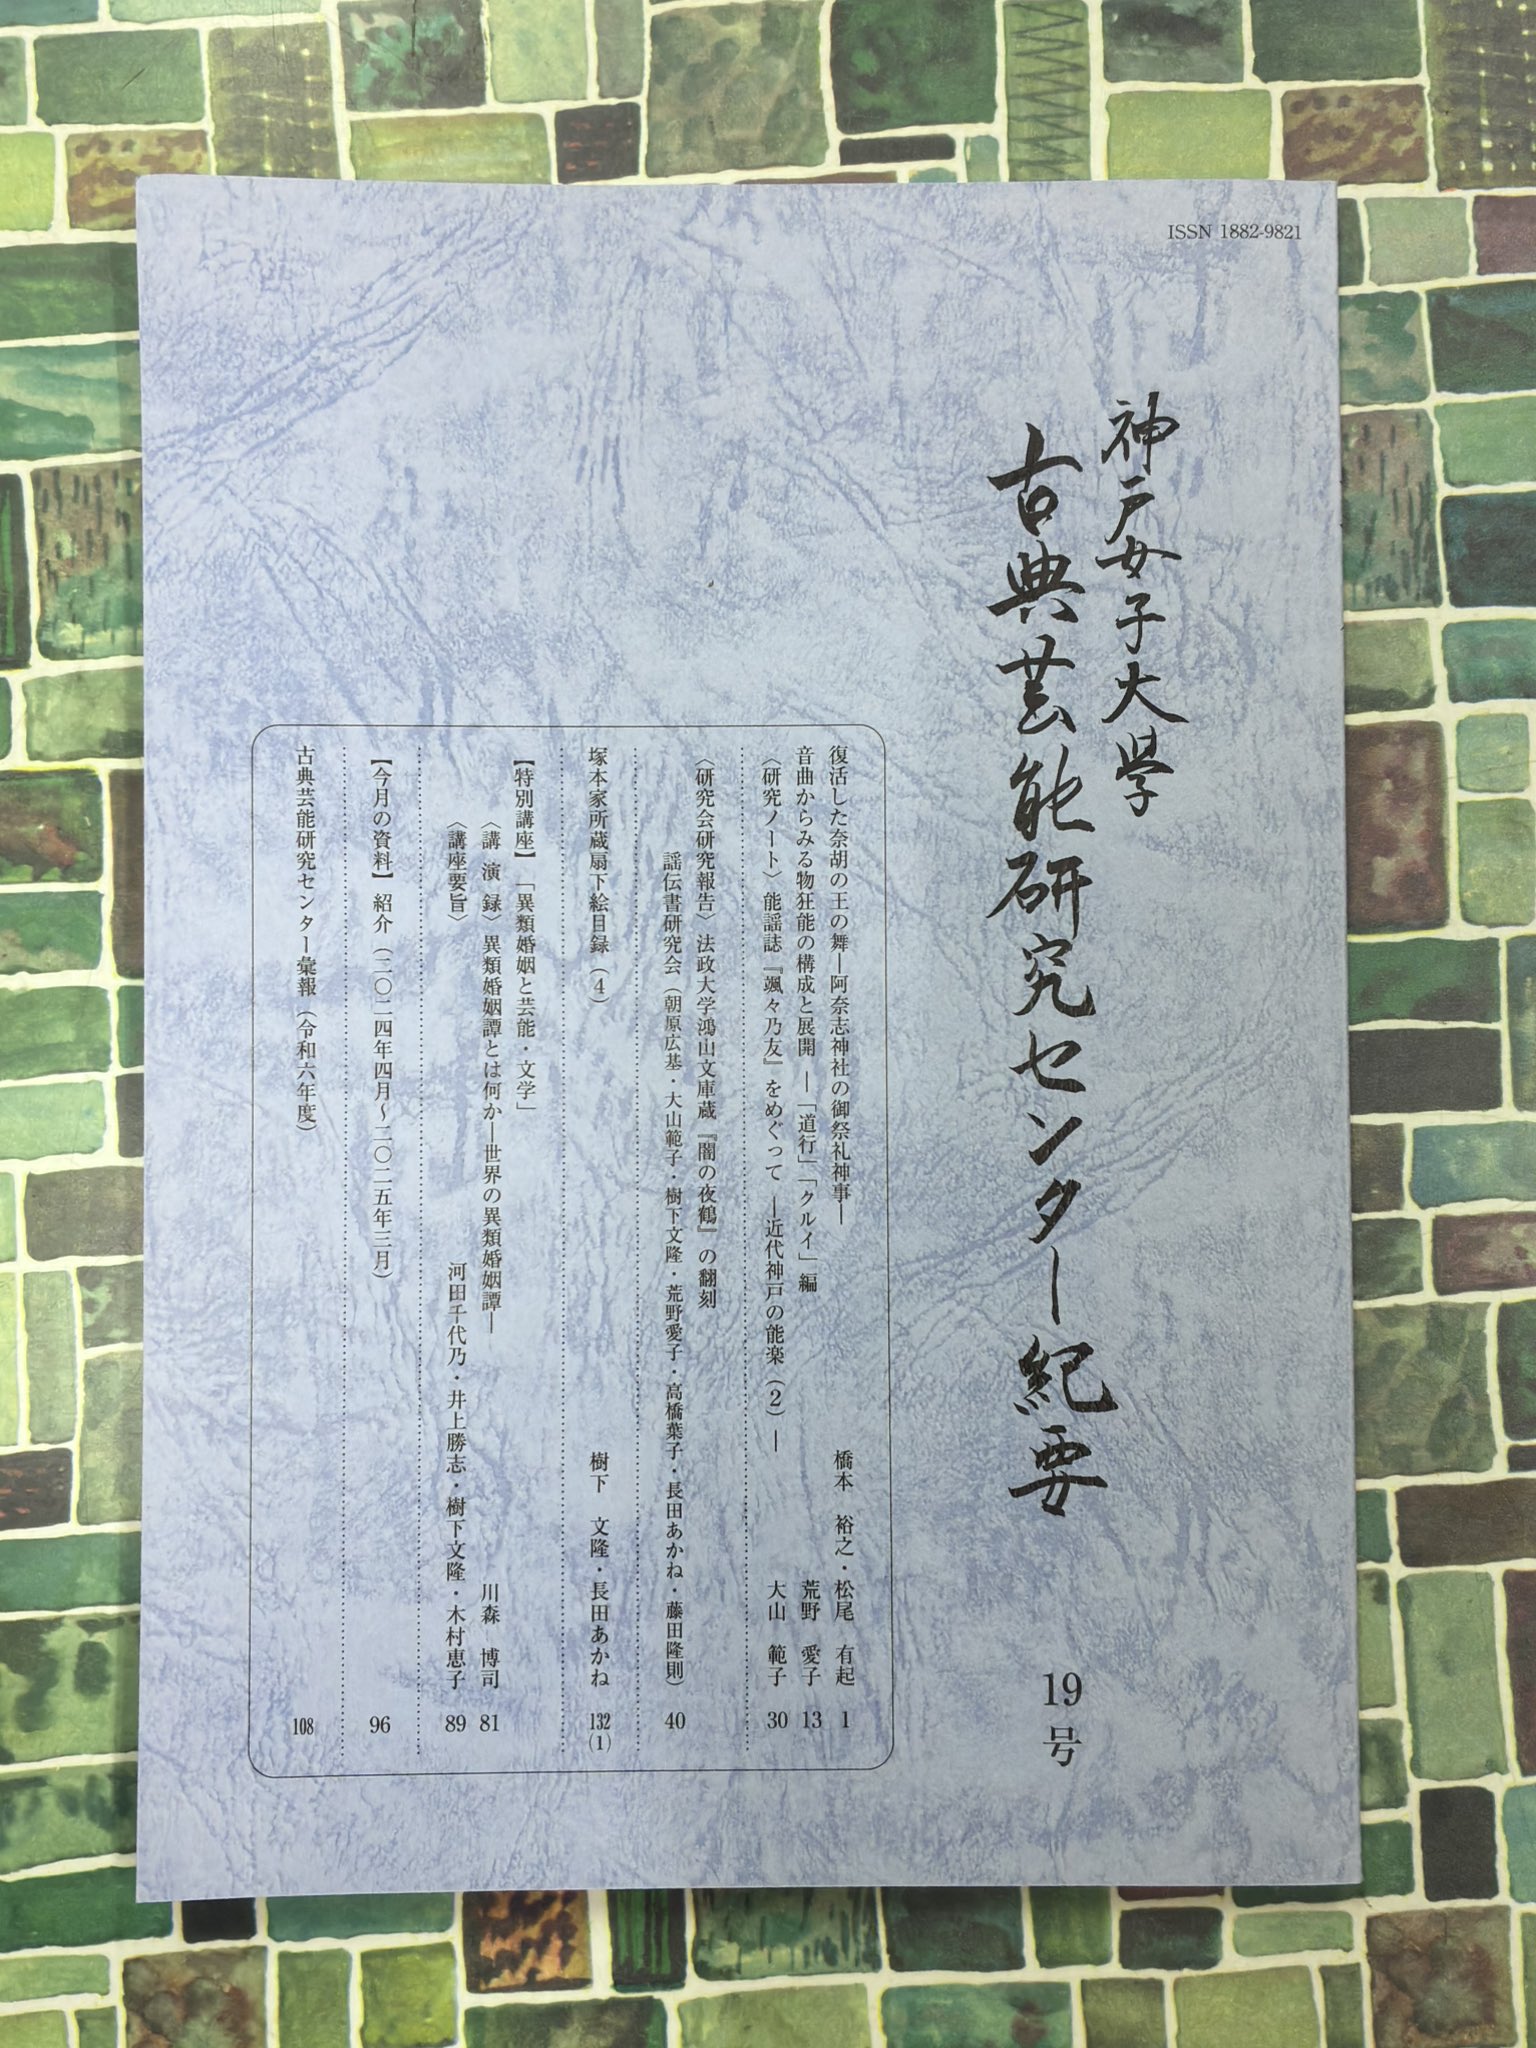 ISSN 1882-9821
神戸女子大學
古典芸能研究センター紀要
19号
復活した奈胡の王の舞―阿奈志神社の御祭礼神事― 橋本 裕之・松尾 有起 1
音曲からみる物狂能の構成と展開 ―「道行」「クルイ」編 荒野 愛子 13
〈研究ノート〉能謡誌『颯々乃友』をめぐって ―近代神戸の能楽(2)― 大山 範子 30
〈研究会研究報告〉法政大学鴻山文庫蔵『闇の夜鶴』の翻刻
謡伝書研究会(朝原広基・大山範子・樹下文隆・荒野愛子・高橋葉子・長田あかね・藤田隆則) 40
塚本家所蔵扇下絵目録(4) 樹下 文隆・長田あかね 132(1)
【特別講座】「異類婚姻と芸能・文学」
〈講 演 録〉異類婚姻譚とは何か―世界の異類婚姻譚― 川森 博司 81
〈講座要旨〉 河田千代乃・井上勝志・樹下文隆・木村恵子 89
【今月の資料】紹介(二〇二四年四月～二〇二五年三月) 96
古典芸能研究センター彙報(令和六年度) 108